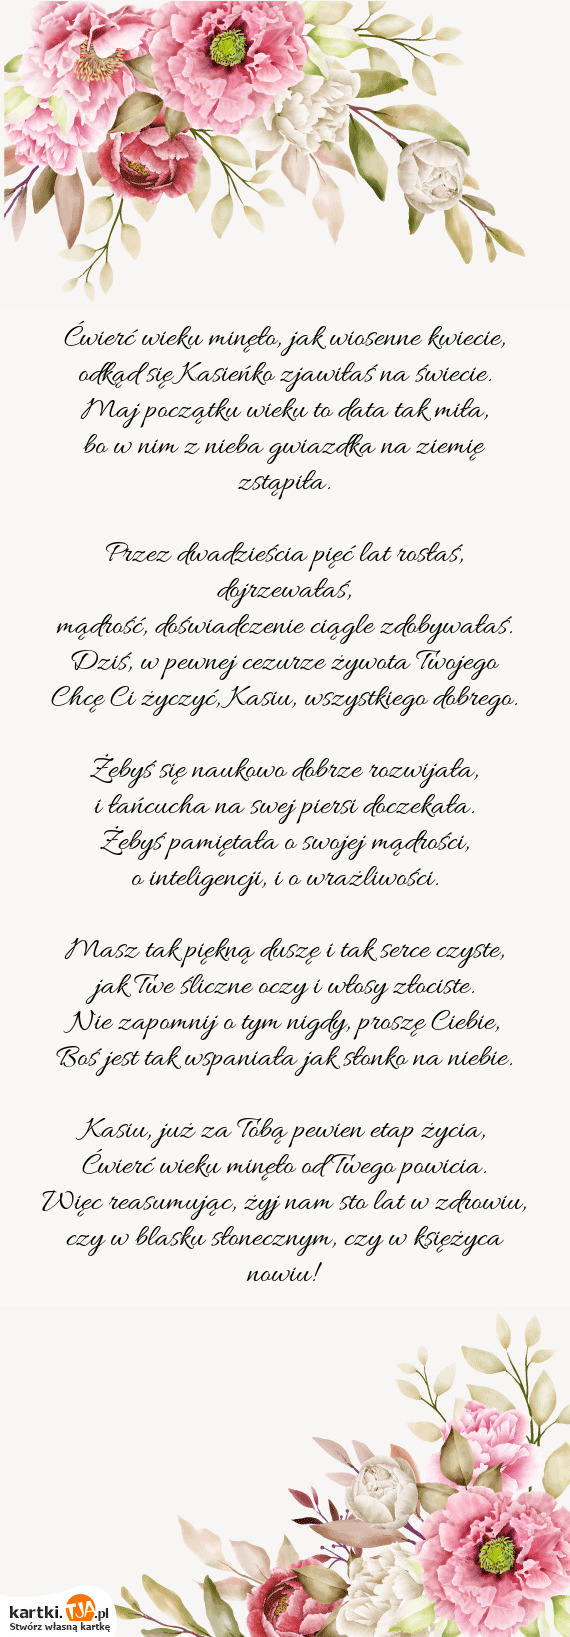 Ćwierć wieku minęło, jak wiosenne kwiecie,
odkąd się Kasieńko zjawiłaś na świecie.
Maj początku wieku to data tak miła,
bo w nim z nieba gwiazdka na ziemię
zstąpiła.
Przez dwadzieścia pięć lat rosłaś,
dojrzewałaś,
mądrość, doświadczenie ciągle zdobywałaś.
Dziś, w pewnej cezurze żywota Twojego
Chcę Ci życzyć, Kasiu, wszystkiego dobrego.
Żebyś się naukowo dobrze rozwijała,
i łańcucha na swej piersi doczekała.
Żebyś pamiętała o swojej mądrości,
o inteligencji, i o wrażliwości.
Masz tak piękną duszę i tak serce czyste,
jak Twe śliczne oczy i włosy złociste.
Nie zapomnij o tym nigdy, proszę Ciebie,
Boś jest tak wspaniała jak słonko na niebie.
Kasiu, już za Tobą pewien etap życia,
Ćwierć wieku minęło od Twego powicia.
Więc reasumując, żyj nam sto lat w zdrowiu,
czy w blasku słonecznym, czy w księżyca
nowiu!
kartki.TJA.pl
Stwórz własną kartkę